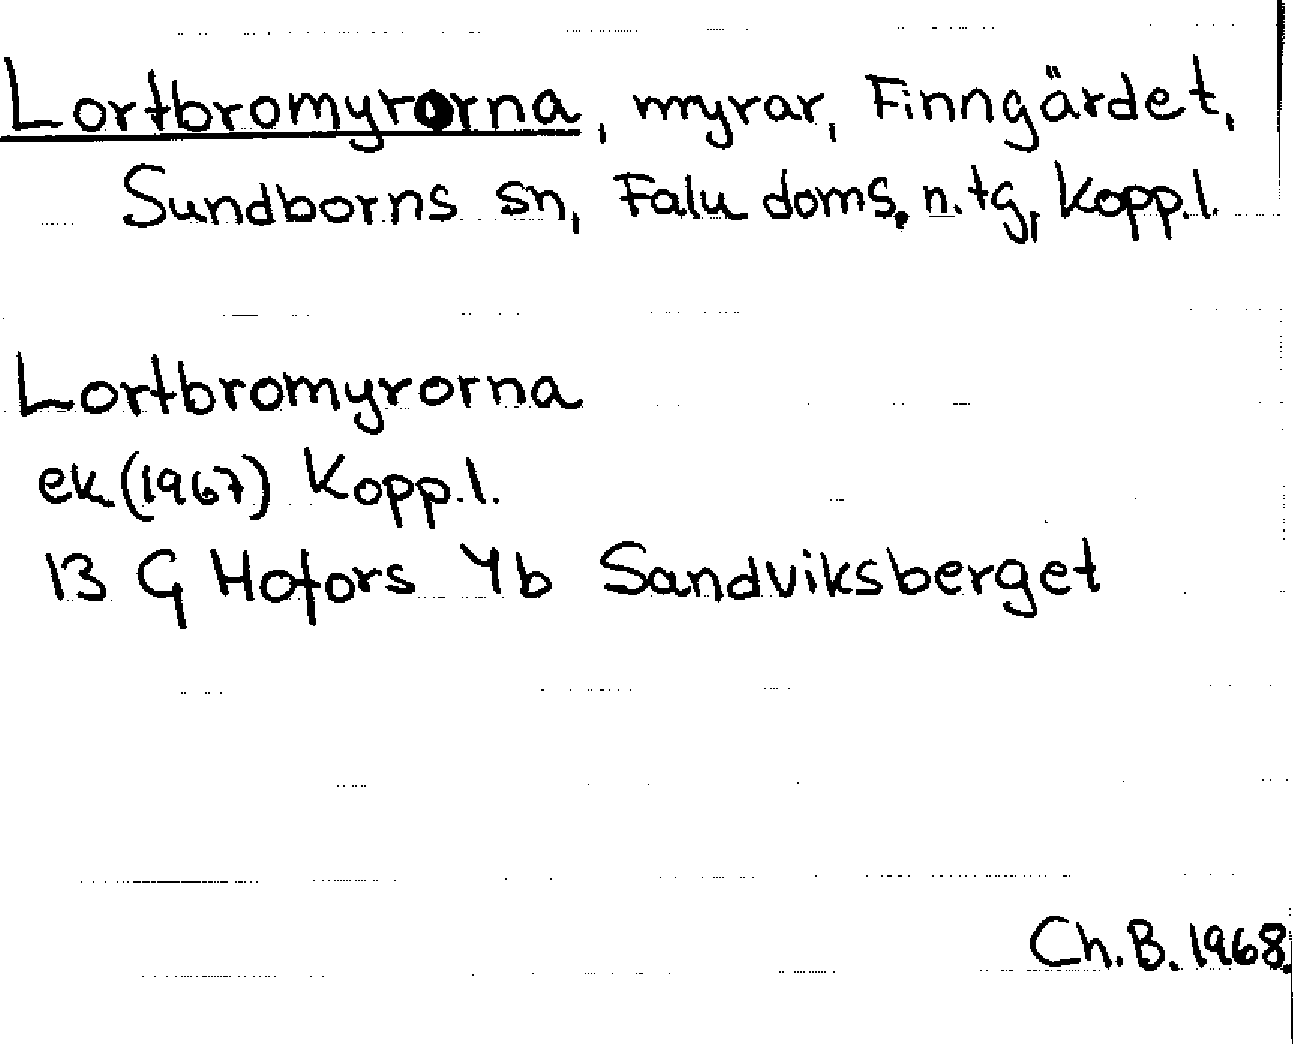 Lortbromyrorna, myrar, Finngärdet,
Sundborns sn, Falu doms. n. tg, Kopp.l.
Lortbromyrorna
ek (1967) Kopp.l.
13 G Hofors 4b Sandviksberget
Ch. B. 1968.